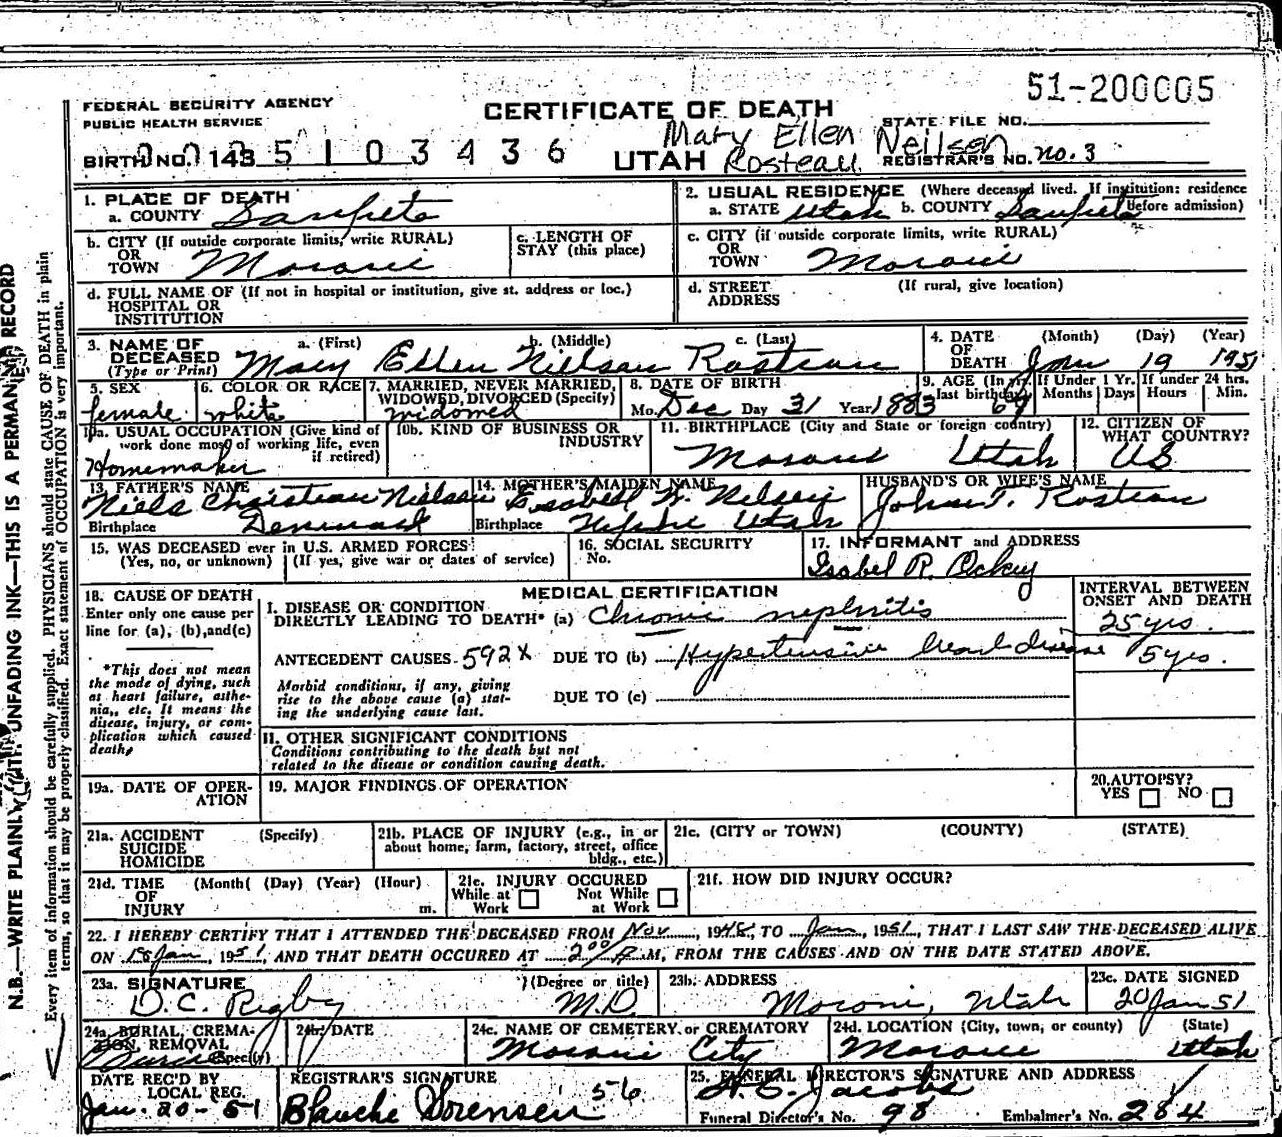 51-200005
FEDERAL SECURITY AGENCY
PUBLIC HEALTH SERVICE
CERTIFICATE OF DEATH
STATE FILE NO.
Mary Ellen Neilson
BIRTH NO. 143 5 1 0 3 4 3 6
UTAH Rosteau REGISTRAR'S NO. no. 3
1. PLACE OF DEATH
a. COUNTY Sanpete
2. USUAL RESIDENCE (Where deceased lived. If institution: residence before admission)
a. STATE Utah b. COUNTY Sanpete
b. CITY (If outside corporate limits, write RURAL)
OR
TOWN Moroni
c. LENGTH OF
STAY (this place)
c. CITY (if outside corporate limits, write RURAL)
OR
TOWN Moroni
d. FULL NAME OF (If not in hospital or institution, give st. address or loc.)
HOSPITAL OR
INSTITUTION
d. STREET (If rural, give location)
ADDRESS
3. NAME OF
DECEASED
(Type or Print)
a. (First) b. (Middle) c. (Last)
Mary Ellen Nielson Rosteau
4. DATE (Month) (Day) (Year)
OF
DEATH Jan 19 1951
5. SEX
female
6. COLOR OR RACE
white
7. MARRIED, NEVER MARRIED,
WIDOWED, DIVORCED (Specify)
widowed
8. DATE OF BIRTH
Mo. Dec Day 31 Year 1883
9. AGE (In yrs.
last birthday)
If Under 1 Yr.
Months Days
If under 24 hrs.
Hours Min.
10a. USUAL OCCUPATION (Give kind of
work done most of working life, even
if retired)
Homemaker
10b. KIND OF BUSINESS OR
INDUSTRY
11. BIRTHPLACE (City and State or foreign country)
Moroni Utah
12. CITIZEN OF
WHAT COUNTRY?
US
13. FATHER'S NAME
Niels Christian Nielson
Birthplace Denmark
14. MOTHER'S MAIDEN NAME
Birthplace Nephi Utah
HUSBAND'S OR WIFE'S NAME
John T. Rosteau
15. WAS DECEASED ever in U.S. ARMED FORCES:
(Yes, no, or unknown) (If yes, give war or dates of service)
16. SOCIAL SECURITY
No.
17. INFORMANT and ADDRESS
Isabel R. Ockey
18. CAUSE OF DEATH
Enter only one cause per
line for (a), (b), and (c)
*This does not mean
the mode of dying, such
as heart failure, asthe-
nia,, etc. It means the
disease, injury, or com-
plication which caused
death,
MEDICAL CERTIFICATION
I. DISEASE OR CONDITION
DIRECTLY LEADING TO DEATH* (a) Chronic nephritis
ANTECEDENT CAUSES. 592X DUE TO (b) Hypertensive heart disease
Morbid conditions, if any, giving
rise to the above cause (a) stat-
ing the underlying cause last.
DUE TO (c)
INTERVAL BETWEEN
ONSET AND DEATH
25 yrs.
5 yrs.
II. OTHER SIGNIFICANT CONDITIONS
Conditions contributing to the death but not
related to the disease or condition causing death.
19a. DATE OF OPER-
ATION
19. MAJOR FINDINGS OF OPERATION
20. AUTOPSY?
YES NO
21a. ACCIDENT (Specify)
SUICIDE
HOMICIDE
21b. PLACE OF INJURY (e.g., in or
about home, farm, factory, street, office
bldg., etc.)
21c. (CITY or TOWN) (COUNTY) (STATE)
21d. TIME (Month( (Day) (Year) (Hour)
OF
INJURY m.
21e. INJURY OCCURED
While at Work
Not While at Work
21f. HOW DID INJURY OCCUR?
22. I HEREBY CERTIFY THAT I ATTENDED THE DECEASED FROM Nov, 1948, TO Jan, 1951, THAT I LAST SAW THE DECEASED ALIVE
ON 18 Jan, 1951, AND THAT DEATH OCCURED AT 2:00 M, FROM THE CAUSES AND ON THE DATE STATED ABOVE.
23a. SIGNATURE (Degree or title)
D. C. Rigby M.D.
23b. ADDRESS
Moroni, Utah
23c. DATE SIGNED
20 Jan 51
24a. BURIAL, CREMA-
TION, REMOVAL
(Specify)
Burial
24b. DATE
24c. NAME OF CEMETERY or CREMATORY
Moroni City
24d. LOCATION (City, town, or county) (State)
Moroni Utah
DATE REC'D BY
LOCAL REG.
Jan. 20-51
REGISTRAR'S SIGNATURE
Blanche Sorensen 56
25. FUNERAL DIRECTOR'S SIGNATURE AND ADDRESS
Jacobs
Funeral Director's No. 98 Embalmer's No. 284
N.B.—WRITE PLAINLY WITH UNFADING INK—THIS IS A PERMANENT RECORD
Every item of information should be carefully supplied. PHYSICIANS should state CAUSE OF DEATH in plain
terms, so that it may be properly classified. Exact statement of OCCUPATION is very important.